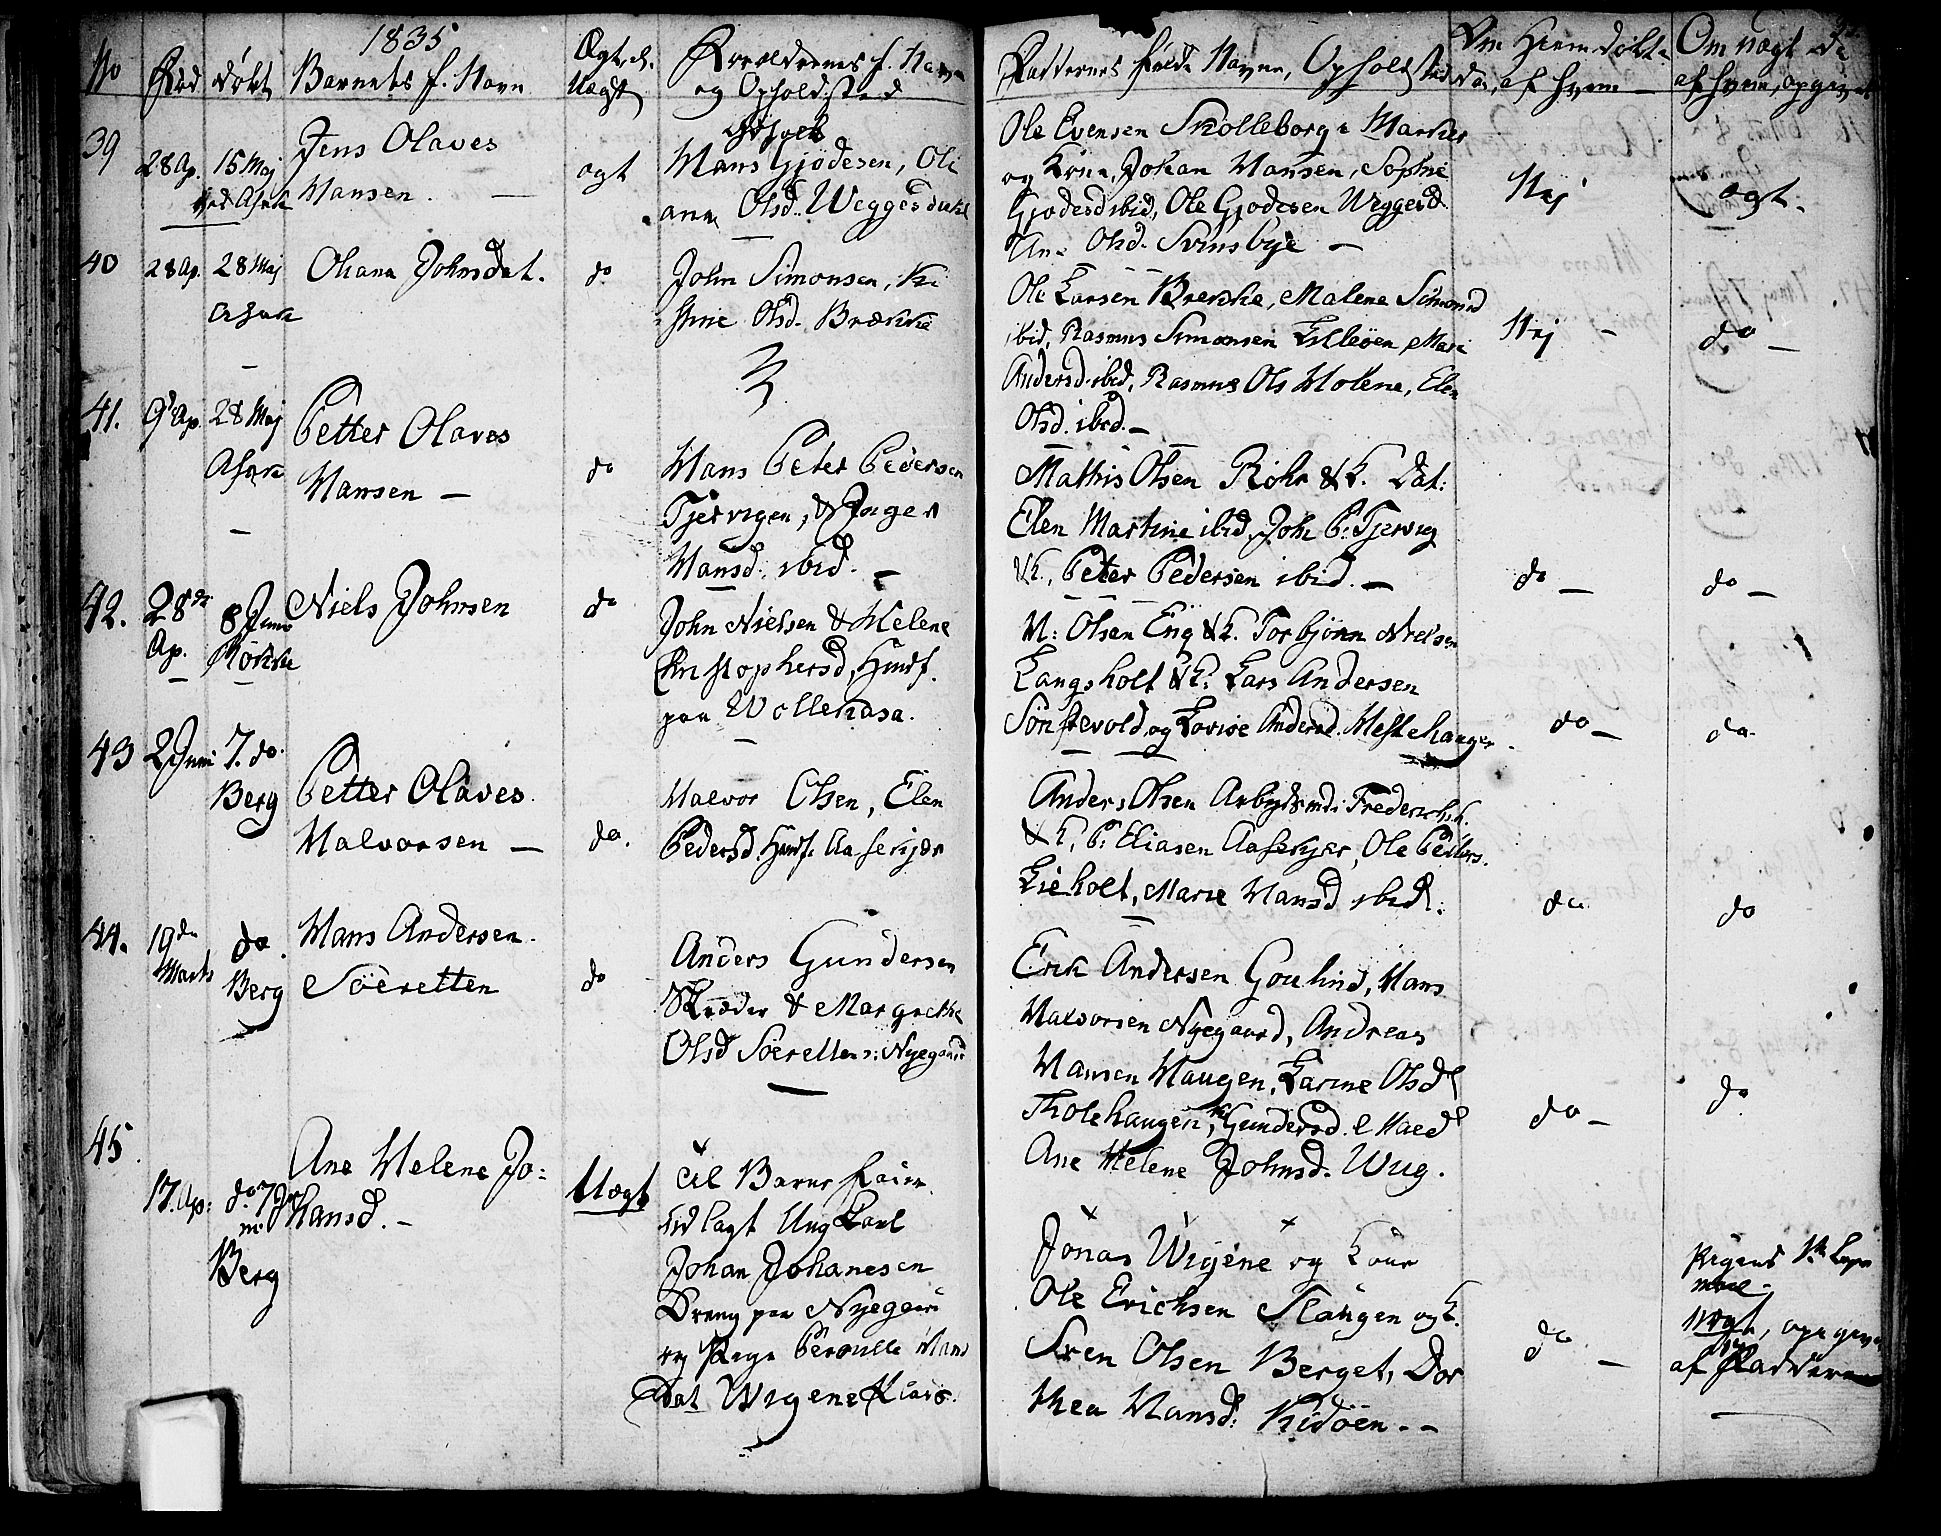 1835
No
Fød
døbt
Barnets f. Navn
Ægt. el.
Uægt
Forældrenes f. Navn
og Opholdsted
Faddernes fulde Navne, Opholdsted
Om Hiemdøbt
af hvem
Om uægt da
af hvem, opgivet
39
28 Ap.
15 Maj
ved Asak
Jens Olaves
Hansen. —
ægt
Hans Gjødesen, Oli
ana Olsd.
Ole Evensen Skolleborg i Marker
og Kone, Johan Hansen, Sophie
Gjødesd ibid, Ole Gjødesen
Ane Olsd. Svinsbye —
Nej
ægt.
40
28 Ap.
28 Maj
Asak
Oliana Johnsdat.
do
John Simonsen, Kri
stine Olsd. Brække
Ole Larsen Brække, Malene Simonsd
ibid, Rasmus Simonsen Lilleøen, Mari
Andersd. ibid, Rasmus Ols Holene, Elen
Olsd. ibid. —
Nej -
do —
41.
9de Ap.
28 Maj
Asak
—
Petter Olaves
Hansen —
do
Hans Peter Pedersen
Tjervigen, & Inger
Hansd. ibid. —
Mathis Olsen Rohr & K. Dat:
Elen Martine ibid, Joh P. Tjervig
& K., Peter Pedersen ibid. —
do —
do —
42.
28de
Ap.
8 Juni
Rokke
Niels Johnsen
do
John Nielsen & Helene
Christophersd, Huusf.
paa Wollenasa.
N: Olsen Eng & K. Torbjørn Nielsen
Langsholt & K. Lars Andersen
Sønstevold, og Lovise Andersd. Hestehaugen
do —
do
43
2 Juni
7. do.
Berg
Petter Olaves
Halvorsen —
do.
Halvor Olsen, Elen
Pedersd. Huusf.
Anders Olsen Arbejdsmd. i Frederichsh.
& K, P. Eliasen, Ole Peders.
Lieholt, Marie Hansd ibid.
do
do
44.
19de
Marts
do.
Berg
Hans Andersen
Söeretten
do
Anders Gundersen
Skræder & Margrethe
Olsd Söeretten: Nyegaard
Erik Andersen Goulund, Hans
Halvorsen Nyegaard, Andreas
Hansen Haugen, Karine Olsd
Tholehaugen, Gundersd.
Ane Helene Johnsd. Wug.
do —
do
45
17. Ap:
do 7 Ju
ni
Berg
Ane Helene Jo=
hansd. -
Uægt
til Barne Fader
udlagt Ung Karl
Johan Johanesen
Dreng paa Nyegaard
og Pige Pernille Hans
Dat Wigene
Jonas Wigene og Kone
Ole Erichsen Slangen og K.
Sven Olsen Berget, Dor
thea Hansd: Kidöen. —
do —
Pigens
Uægt, opgiven
af Fadderne